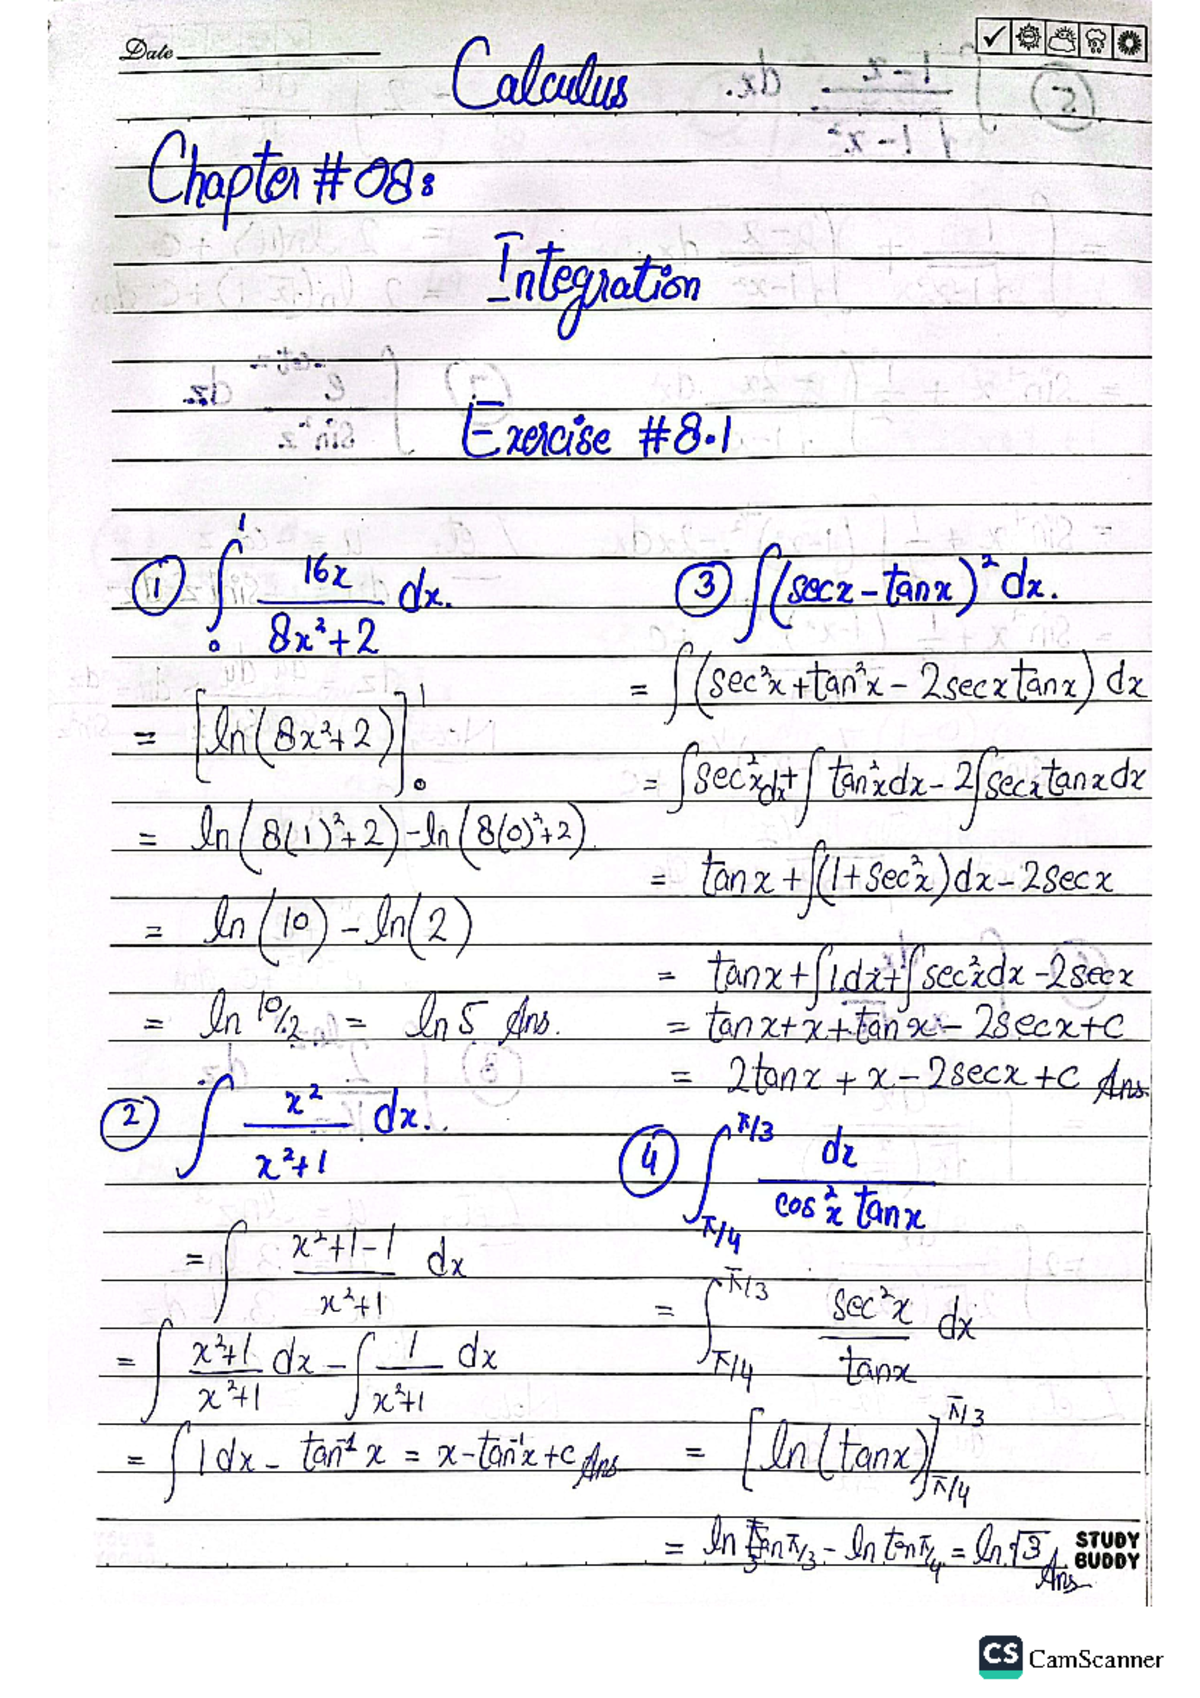 Date
Calculus
Chapter # 08:
Integration
Exercise # 8.1
① ∫₀¹ 16x / (8x²+2) dx.
= [ln(8x²+2)]₀¹
= ln(8(1)²+2) - ln(8(0)²+2)
= ln(10) - ln(2)
= ln 10/2 = ln 5 Ans.
② ∫ x² / (x²+1) dx.
= ∫ (x²+1-1) / (x²+1) dx
= ∫ (x²+1) / (x²+1) dx - ∫ 1 / (x²+1) dx
= ∫ 1 dx - tan⁻¹ x = x - tan⁻¹x + c Ans
③ ∫(sec x - tan x)² dx.
= ∫(sec²x + tan²x - 2 sec x tan x) dx
= ∫sec²x dx + ∫tan²x dx - 2∫sec x tan x dx
= tan x + ∫(1 + sec²x) dx - 2 sec x
= tan x + ∫1.dx + ∫sec²x dx - 2 sec x
= tan x + x + tan x - 2 sec x + c
= 2 tan x + x - 2 sec x + c Ans.
④ ∫_{π/4}^{π/3} dx / (cos²x tan x)
= ∫_{π/4}^{π/3} sec²x / tan x dx
= [ln(tan x)]_{π/4}^{π/3}
= ln tan π/3 - ln tan π/4 = ln √3 Ans
STUDY
BUDDY
CS CamScanner